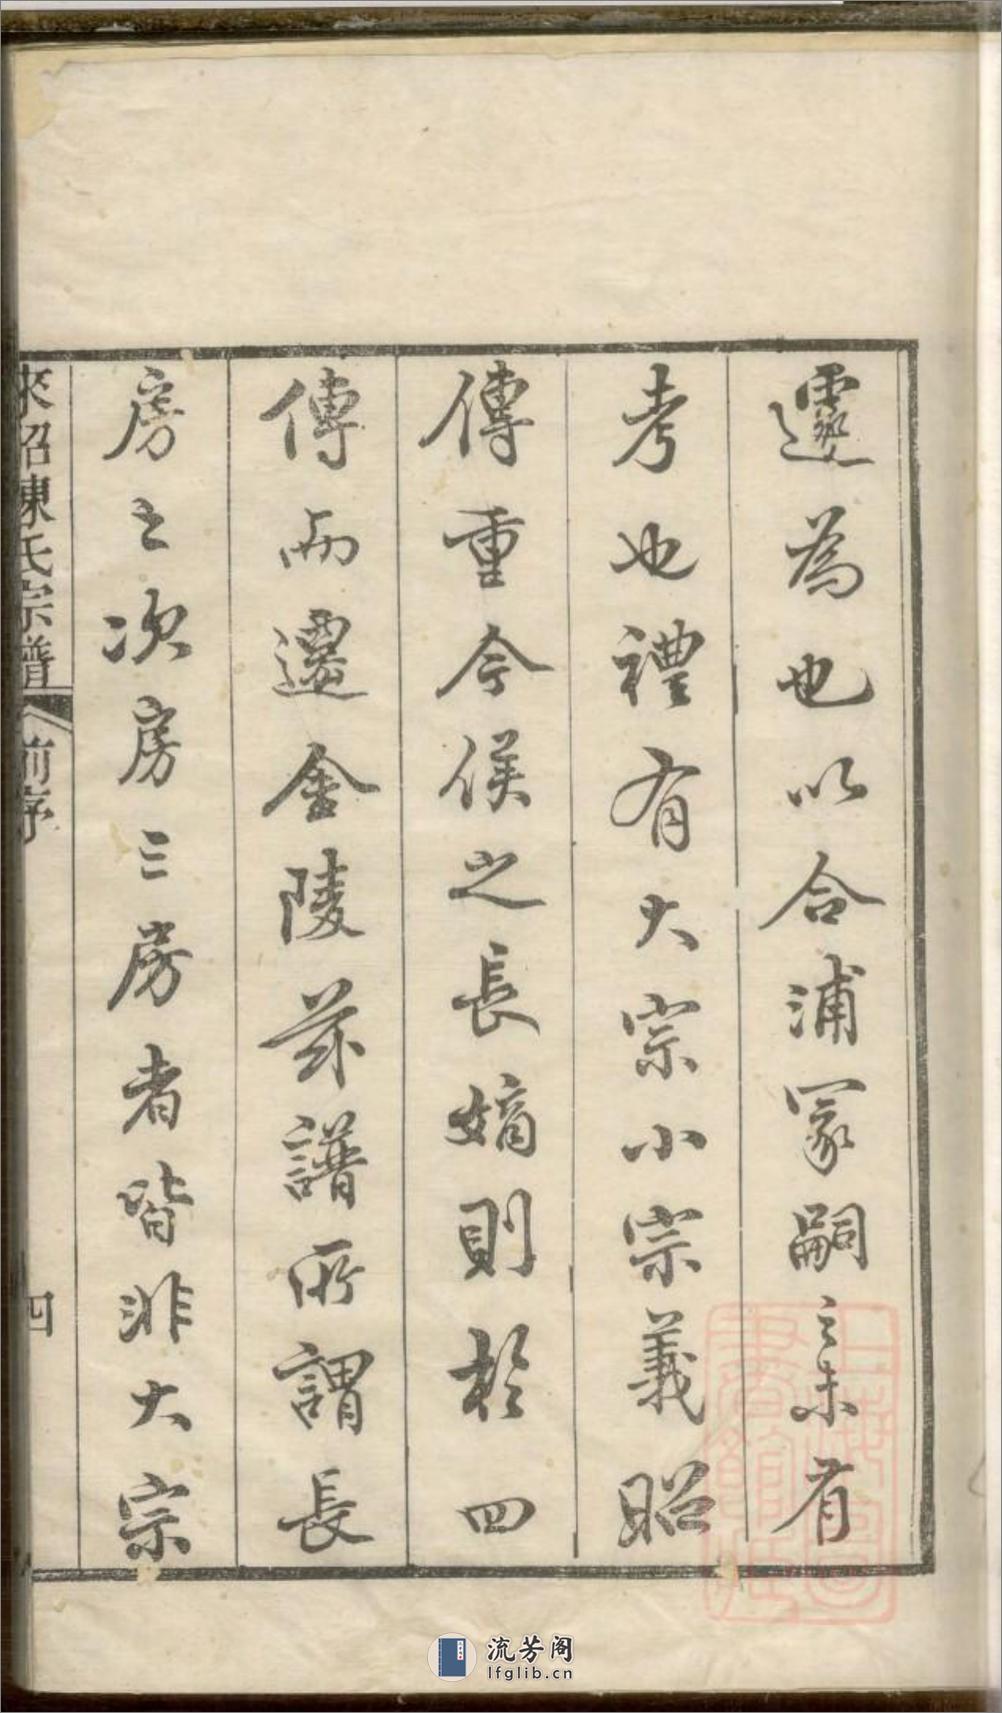 遷為也以合浦冡嗣之未有
考也禮有大宗小宗義昭
傳重今侯之長嫡則於四
傳而遷金陵茲譜所謂長
房之次房三房者皆非大宗
陳氏宗譜
前序
四
上海圖書館藏
流芳阁
lfglib.cn